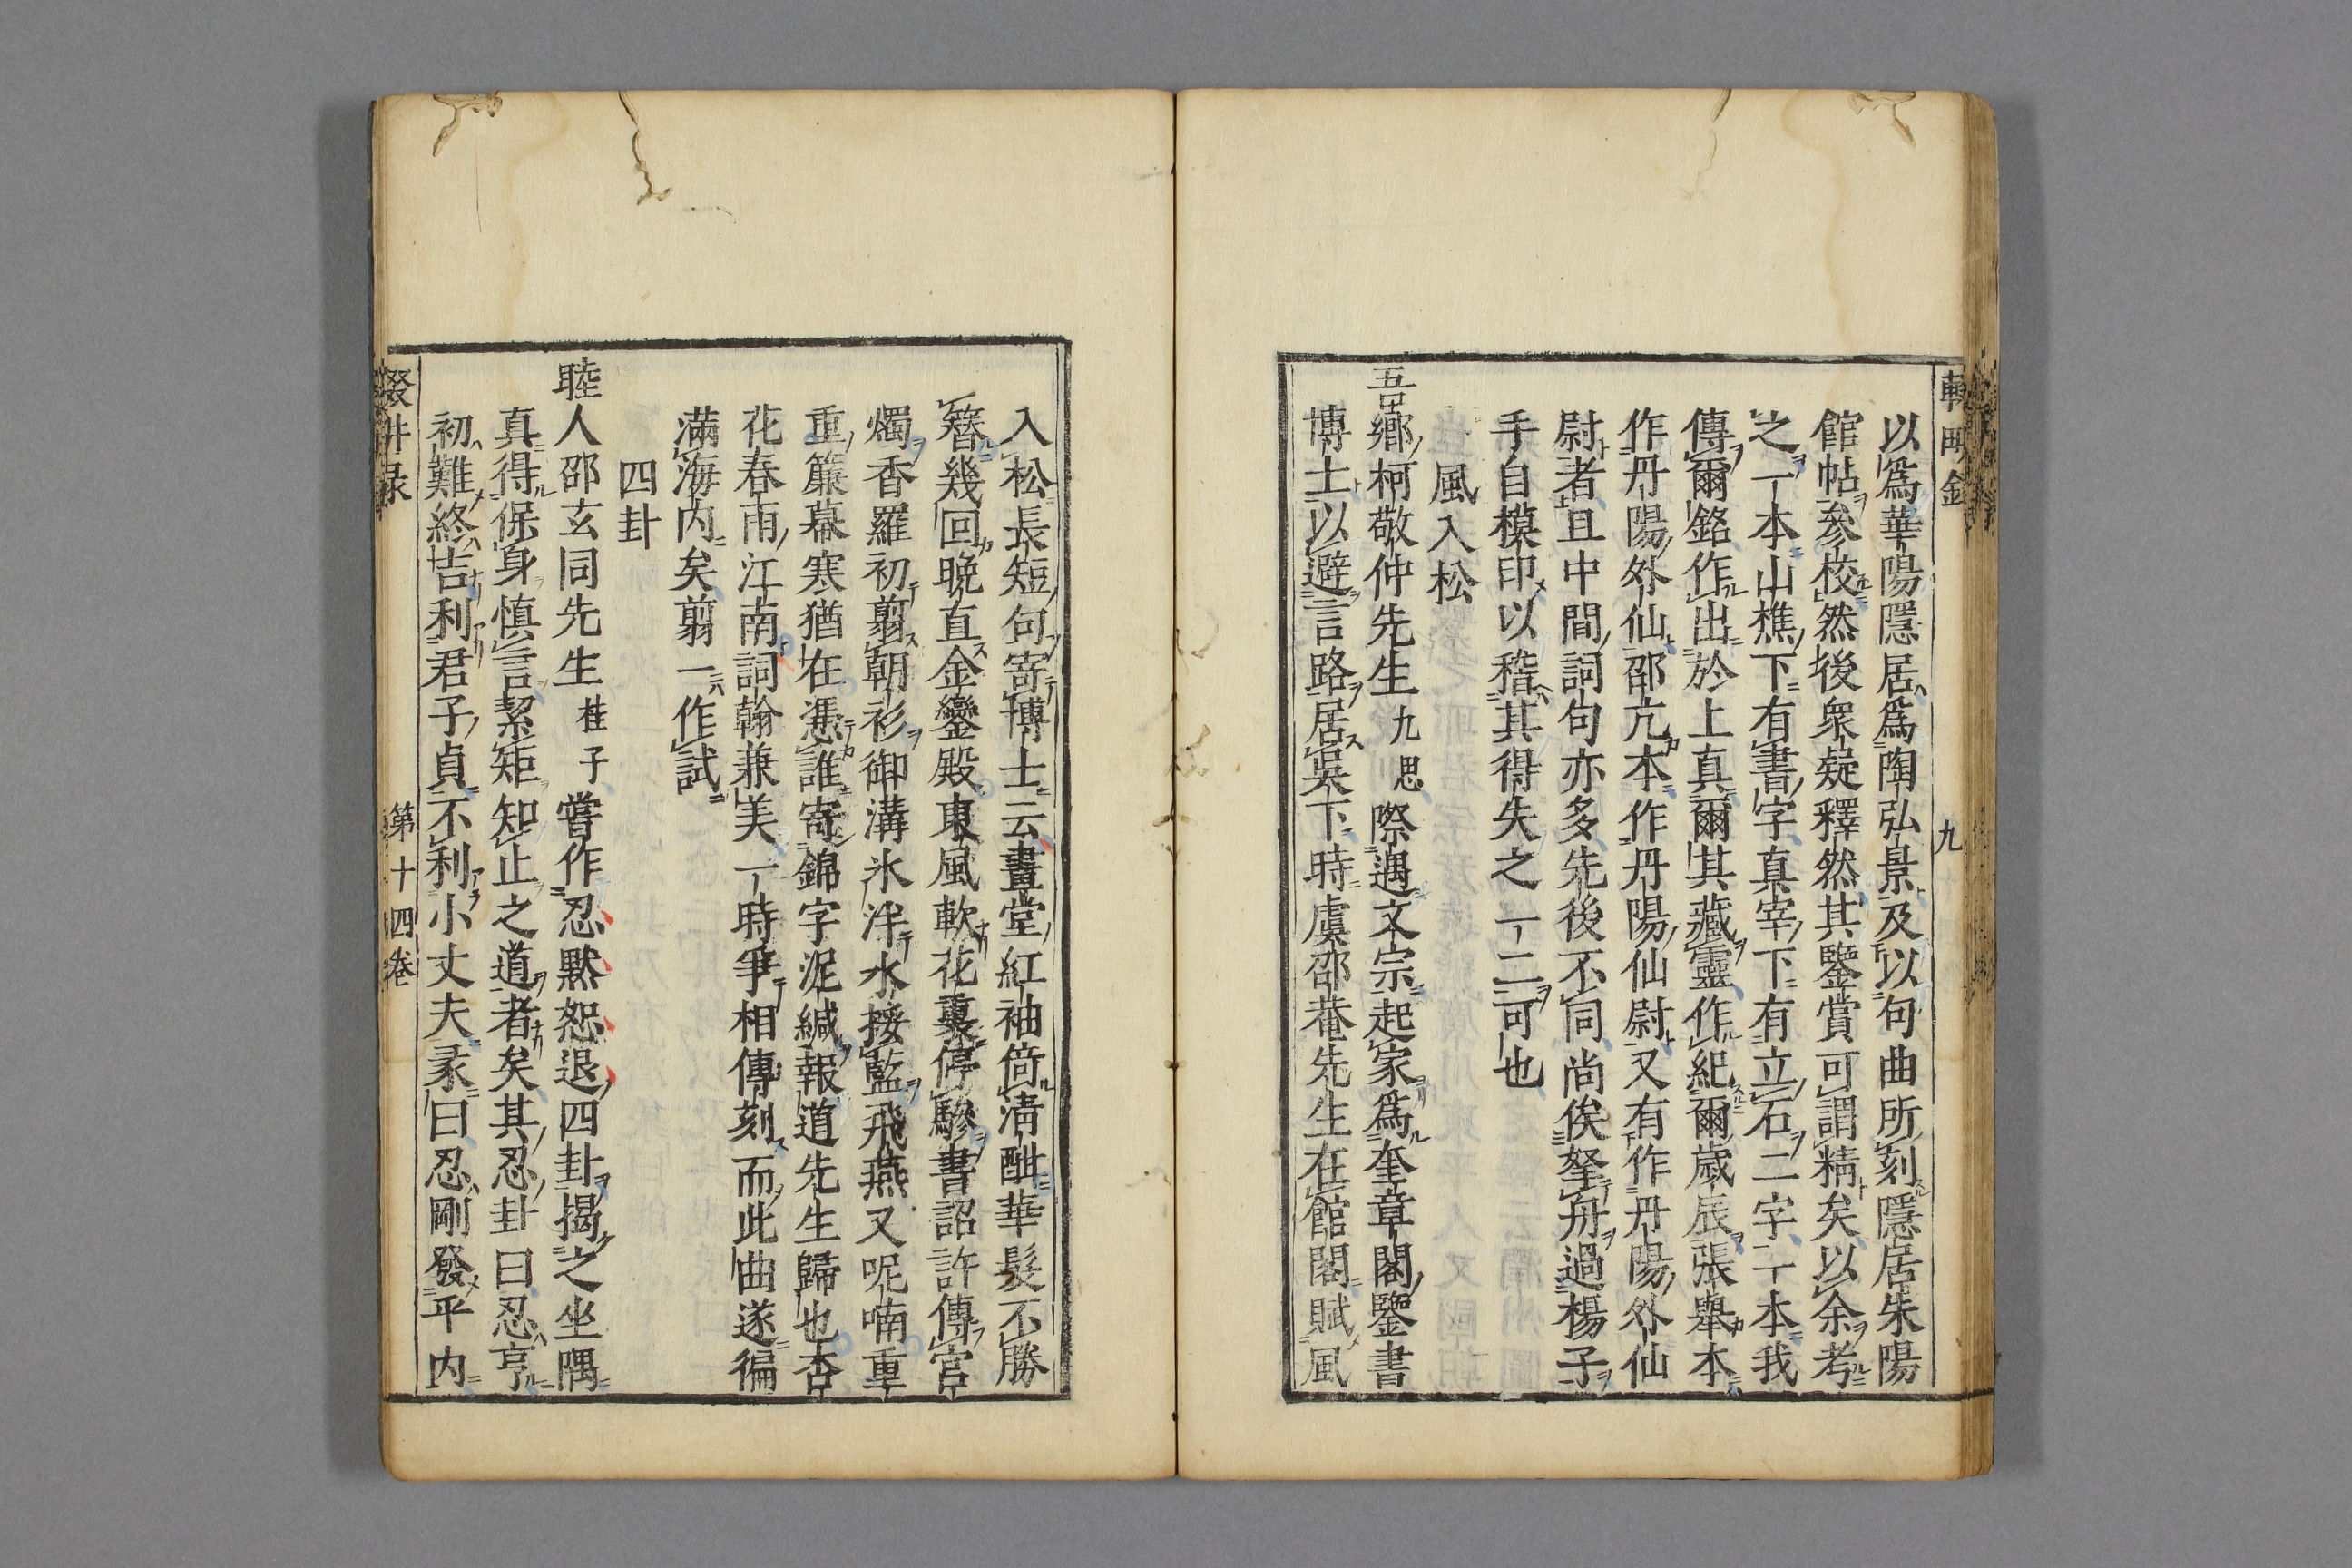 以爲華陽隱居爲陶弘景及以句曲所刻隱居朱陽
館帖參校然後衆疑釋然其鑒賞可謂精矣以余考
之一本山樵下有書字真宰下有立石二字一本我
傳爾銘作出於上真爾其藏靈作紀爾歲辰張舉本
作丹陽外仙邵亢本作丹陽仙尉又有作丹陽外仙
尉者且中間詞句亦多先後不同尚俟拏舟過楊子
手自模印以稽其得失之一二可也
風入松
吾鄉柯敬仲先生九思際遇文宗起家爲奎章閣鑒書
博士以避言路居吳下時虞邵菴先生在館閣賦風
九
入松長短句寄博士云畫堂紅袖倚清酣華髮不勝
簪幾回晚直金鑾殿東風軟花裏停驂書詔許傳宮
燭香羅初翦朝衫御溝氷泮水挼藍飛燕又呢喃重
重簾幕寒猶在憑誰寄錦字泥緘報道先生歸也杏
花春雨江南詞翰兼美一時爭相傳刻而此曲遂徧
滿海内矣翦一作試
四卦
睦人邵玄同先生桂子嘗作忍默恕退四卦揭之坐隅
真得保身慎言絜矩知止之道者矣其忍卦曰忍亨
初難終吉利君子貞不利小丈夫彖曰忍剛發乎内
輟畊录
第十四卷